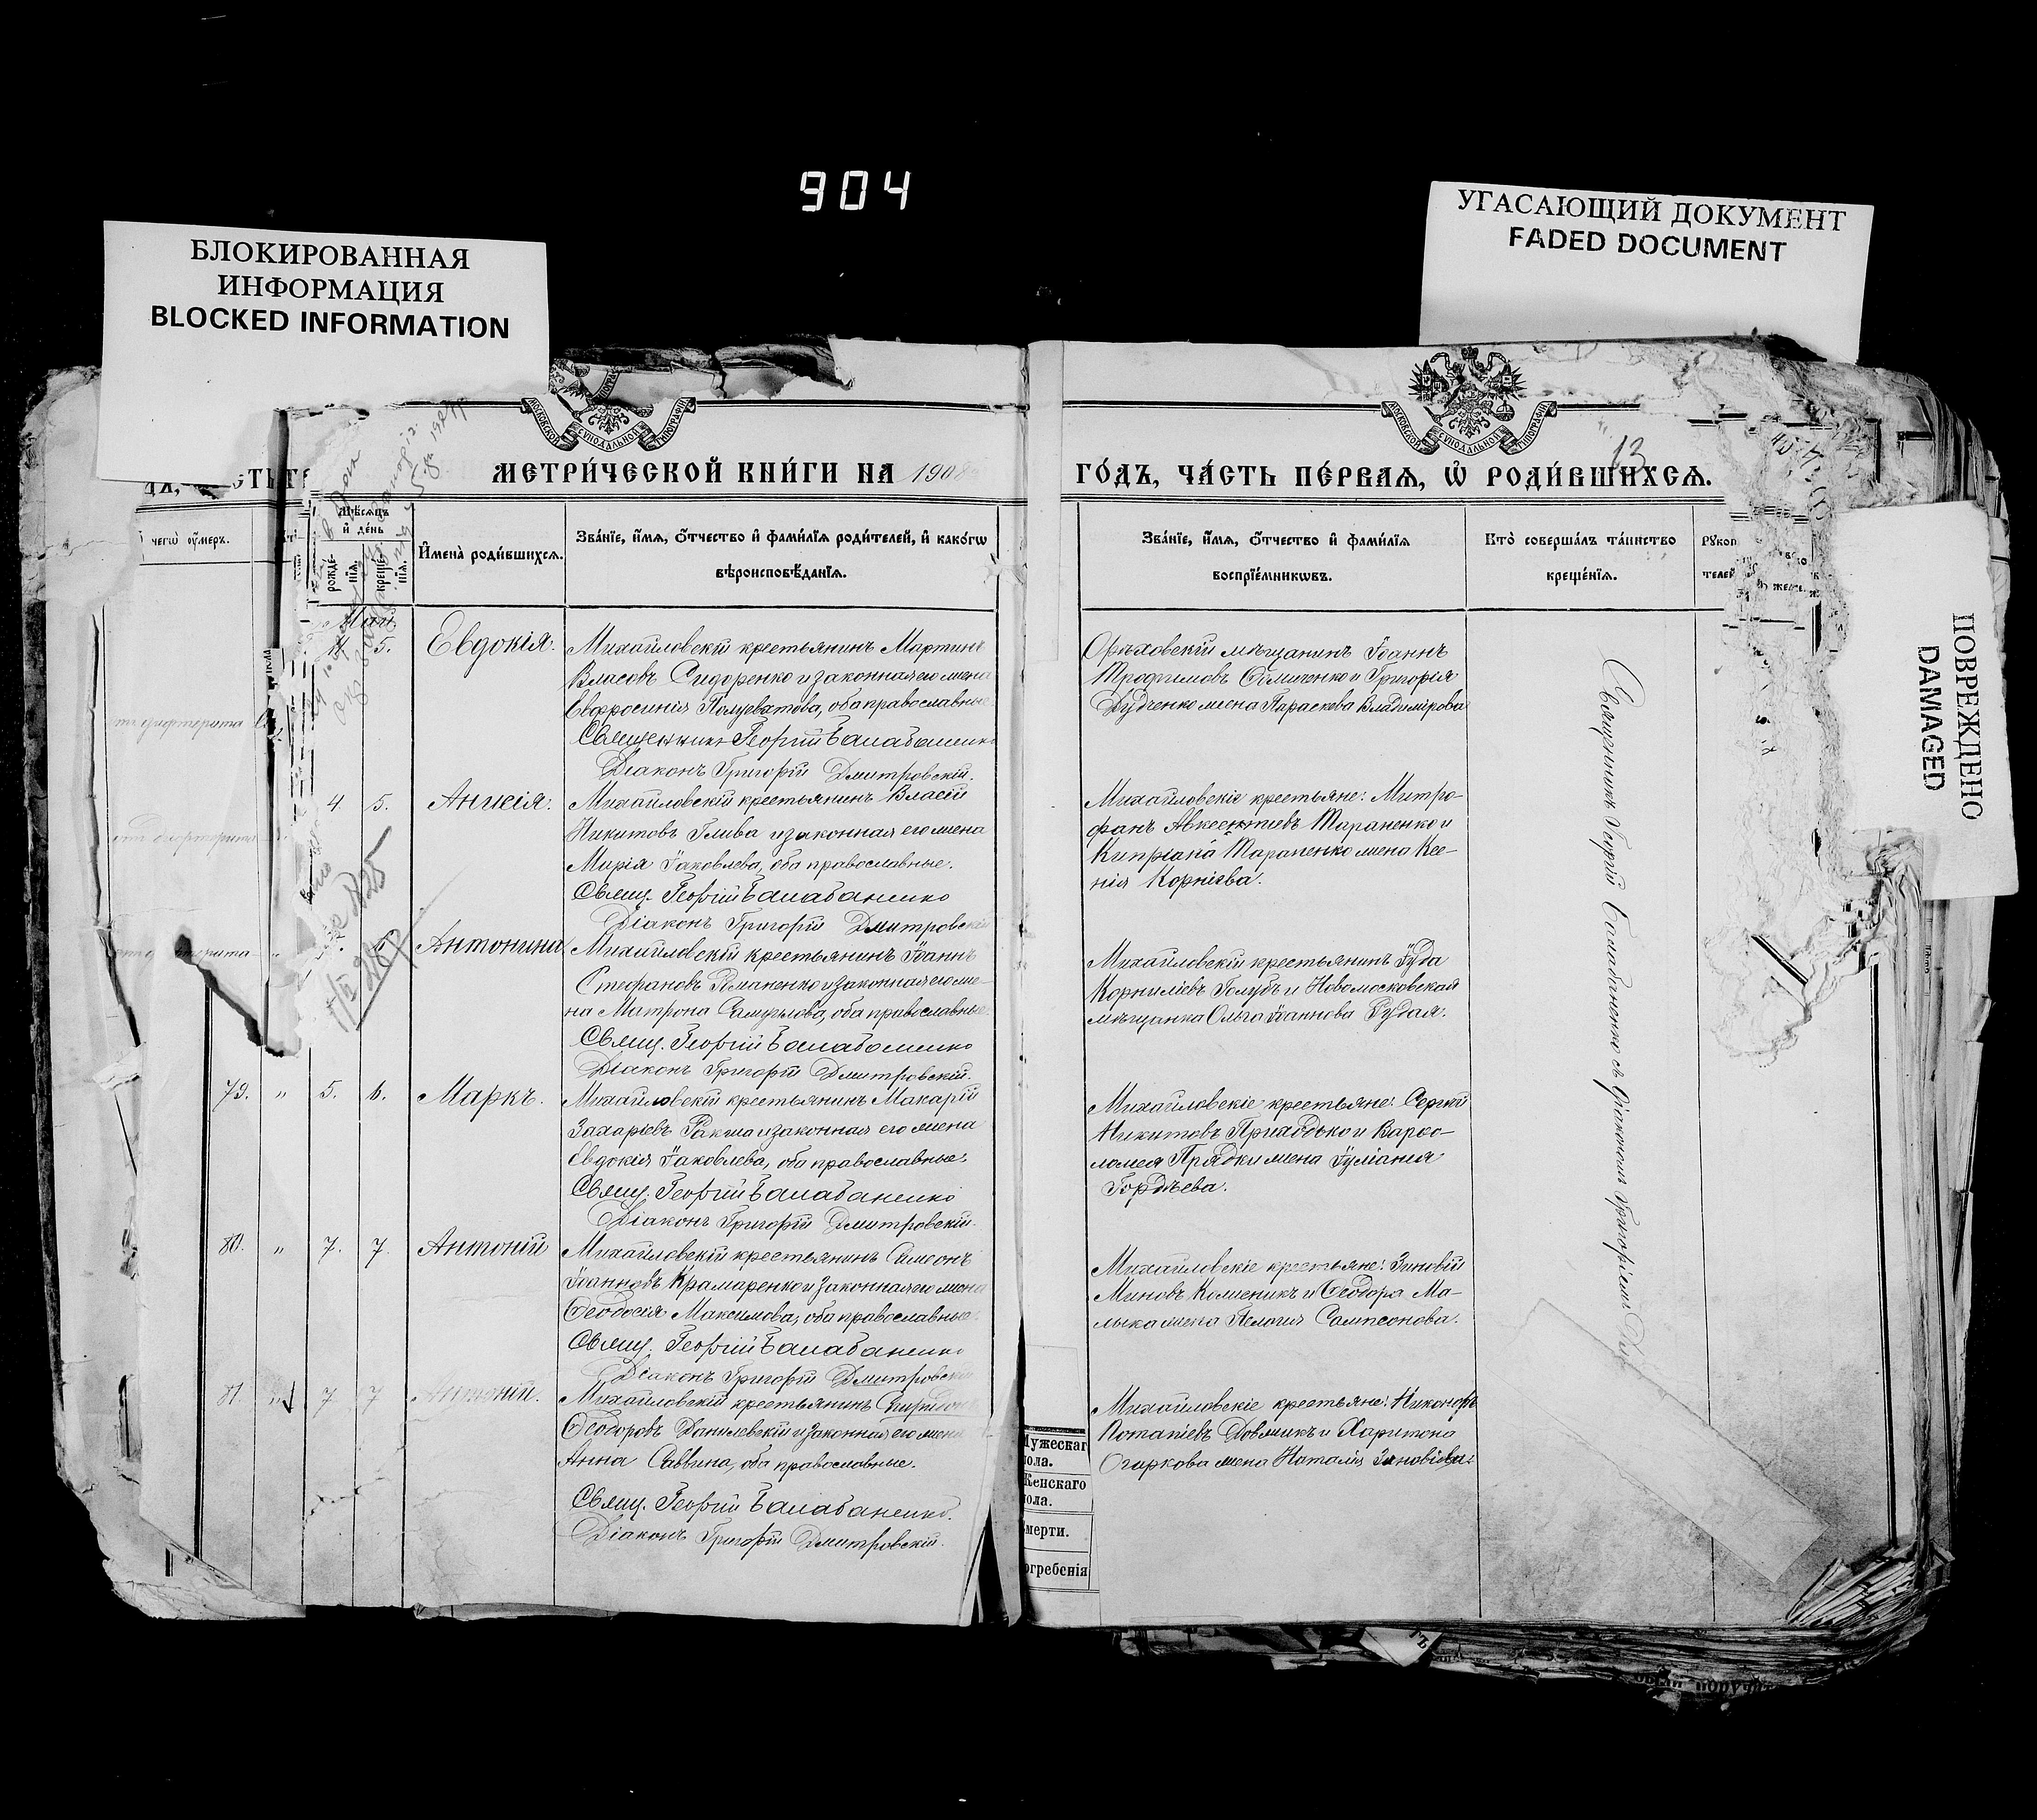 904
БЛОКИРОВАННАЯ
ИНФОРМАЦИЯ
BLOCKED INFORMATION
УГАСАЮЩИЙ ДОКУМЕНТ
FADED DOCUMENT
ПОВРЕЖДЕНО
DAMAGED
МОСКОВСКОЙ СѴНОДАЛЬНОЙ ТИПОГРАФІИ
МОСКОВСКОЙ СѴНОДАЛЬНОЙ ТИПОГРАФІИ
13
МЕТРИ́ЧЕСКОЙ КНИ́ГИ НА 1908
ГО́ДЪ, ЧА́СТЬ ПЕ́РВАѦ, Ѡ҆ РОДИ́ВШИХСѦ.
чегѡ̀ ᲂу҆́меръ.
Мѣ́сѧцъ
и҆ де́нь
рожде́-
нїѧ.
креще́-
нїѧ.
И҆мена̀ роди́вшихсѧ.
Зва́нїе, и҆́мѧ, ѻ҆́тчество и҆ фами́лїѧ роди́телей, и҆ како́гѡ
вѣроисповѣ́данїѧ.
Зва́нїе, и҆́мѧ, ѻ҆́тчество и҆ фами́лїѧ
воспрїе́мникѡвъ.
Кто̀ соверша́лъ та́инство
креще́нїѧ.
Май
4 5. Евдокія.
Михайловскій крестьянинъ Мартинъ
Власовъ Сидоренко и законная его жена
Евфросинія Полуектова, оба православные
Священникъ Георгій Балабаненко
Діаконъ Григорій Дмитровскій.
Орѣховскій мѣщанинъ Іоаннъ
Трофимовъ и Григорія
Дудченко жена Параскева Владимірова
4 5. Анисія.
Михайловскій крестьянинъ Власій
Никитовъ Глива и законная его жена
Марія Іаковлева, оба православные.
Свящ. Георгій Балабаненко
Діаконъ Григорій Дмитровскій
Михайловскіе крестьяне: Митро-
фанъ Авксентіевъ Тараненко и
Кипріана Тараненко жена Ксе-
нія Корніева.
Антонина
Михайловскій крестьянинъ Іоаннъ
Стефановъ Романенко и законная его же-
на Матрона Самуилова, оба православные
Свящ. Георгій Балабаненко
Діаконъ Григорій Дмитровскій.
Михайловскій крестьянинъ Іуда
Корниліевъ Голубъ и Новомосковская
мѣщанка Ольга Іоаннова Рудая.
79. " 5. 6. Маркъ.
Михайловскій крестьянинъ Макарій
Захаріевъ Ракша и законная его жена
Евдокія Іаковлева, оба православные.
Свящ. Георгій Балабаненко
Діаконъ Григорій Дмитровскій.
Михайловскіе крестьяне: Сергій
Никитовъ Приходько и Варѳо-
ломея Прядки жена Іуліанія
Гордѣева.
80. " 7. 7. Антоній
Михайловскій крестьянинъ Симеонъ
Іоанновъ Крамаренко и законная его жена
Ѳеодосія Максимова, оба православные
Свящ. Георгій Балабаненко
Діаконъ Григорій Дмитровскій
Михайловскіе крестьяне: Зиновій
Миновъ и Ѳеодора Ма-
лыка жена Пелагія Сампсонова.
81. " 7 7 Антоній.
Михайловскій крестьянинъ Спиридонъ
Ѳеодоровъ Данилевскій и законная его жена
Анна Саввина, оба православные.
Свящ. Георгій Балабаненко.
Діаконъ Григорій Дмитровскій.
Михайловскіе крестьяне: Никоноръ
Потапіевъ Довжикъ и Харитона
Огаркова жена Наталія Зиновіева.
Священникъ Георгій Балабаненко съ діакономъ Григоріемъ
Мужескаго
пола.
Женскаго
пола.
смерти.
погребенія